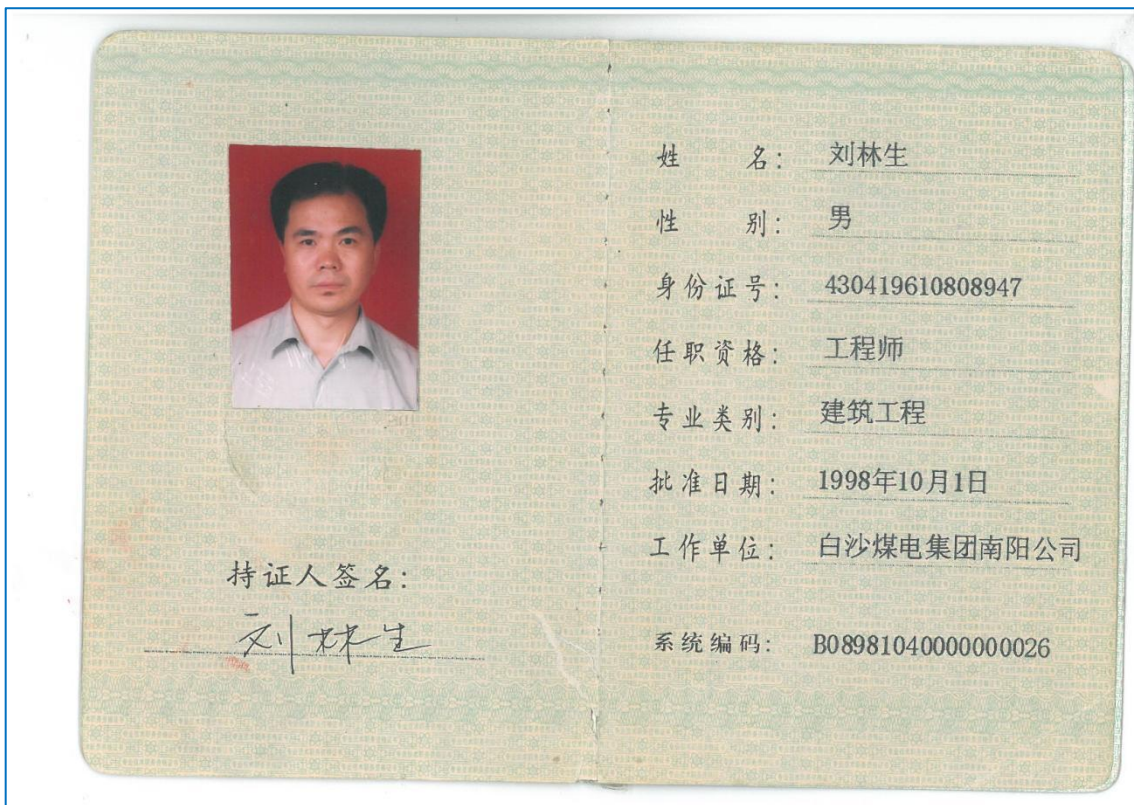 持证人签名:
刘林生
姓名: 刘林生
性别: 男
身份证号: 430419610808947
任职资格: 工程师
专业类别: 建筑工程
批准日期: 1998年10月1日
工作单位: 白沙煤电集团南阳公司
系统编码: B08981040000000026